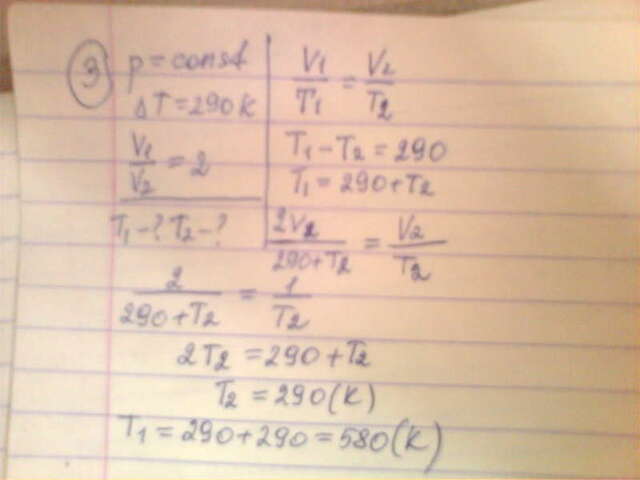 ③ p = const
ΔT = 290 K
V₁/V₂ = 2
T₁ - ? T₂ - ?
V₁/T₁ = V₂/T₂
T₁ - T₂ = 290
T₁ = 290 + T₂
2V₂/290+T₂ = V₂/T₂
2/290+T₂ = 1/T₂
2T₂ = 290 + T₂
T₂ = 290 (K)
T₁ = 290 + 290 = 580 (K)